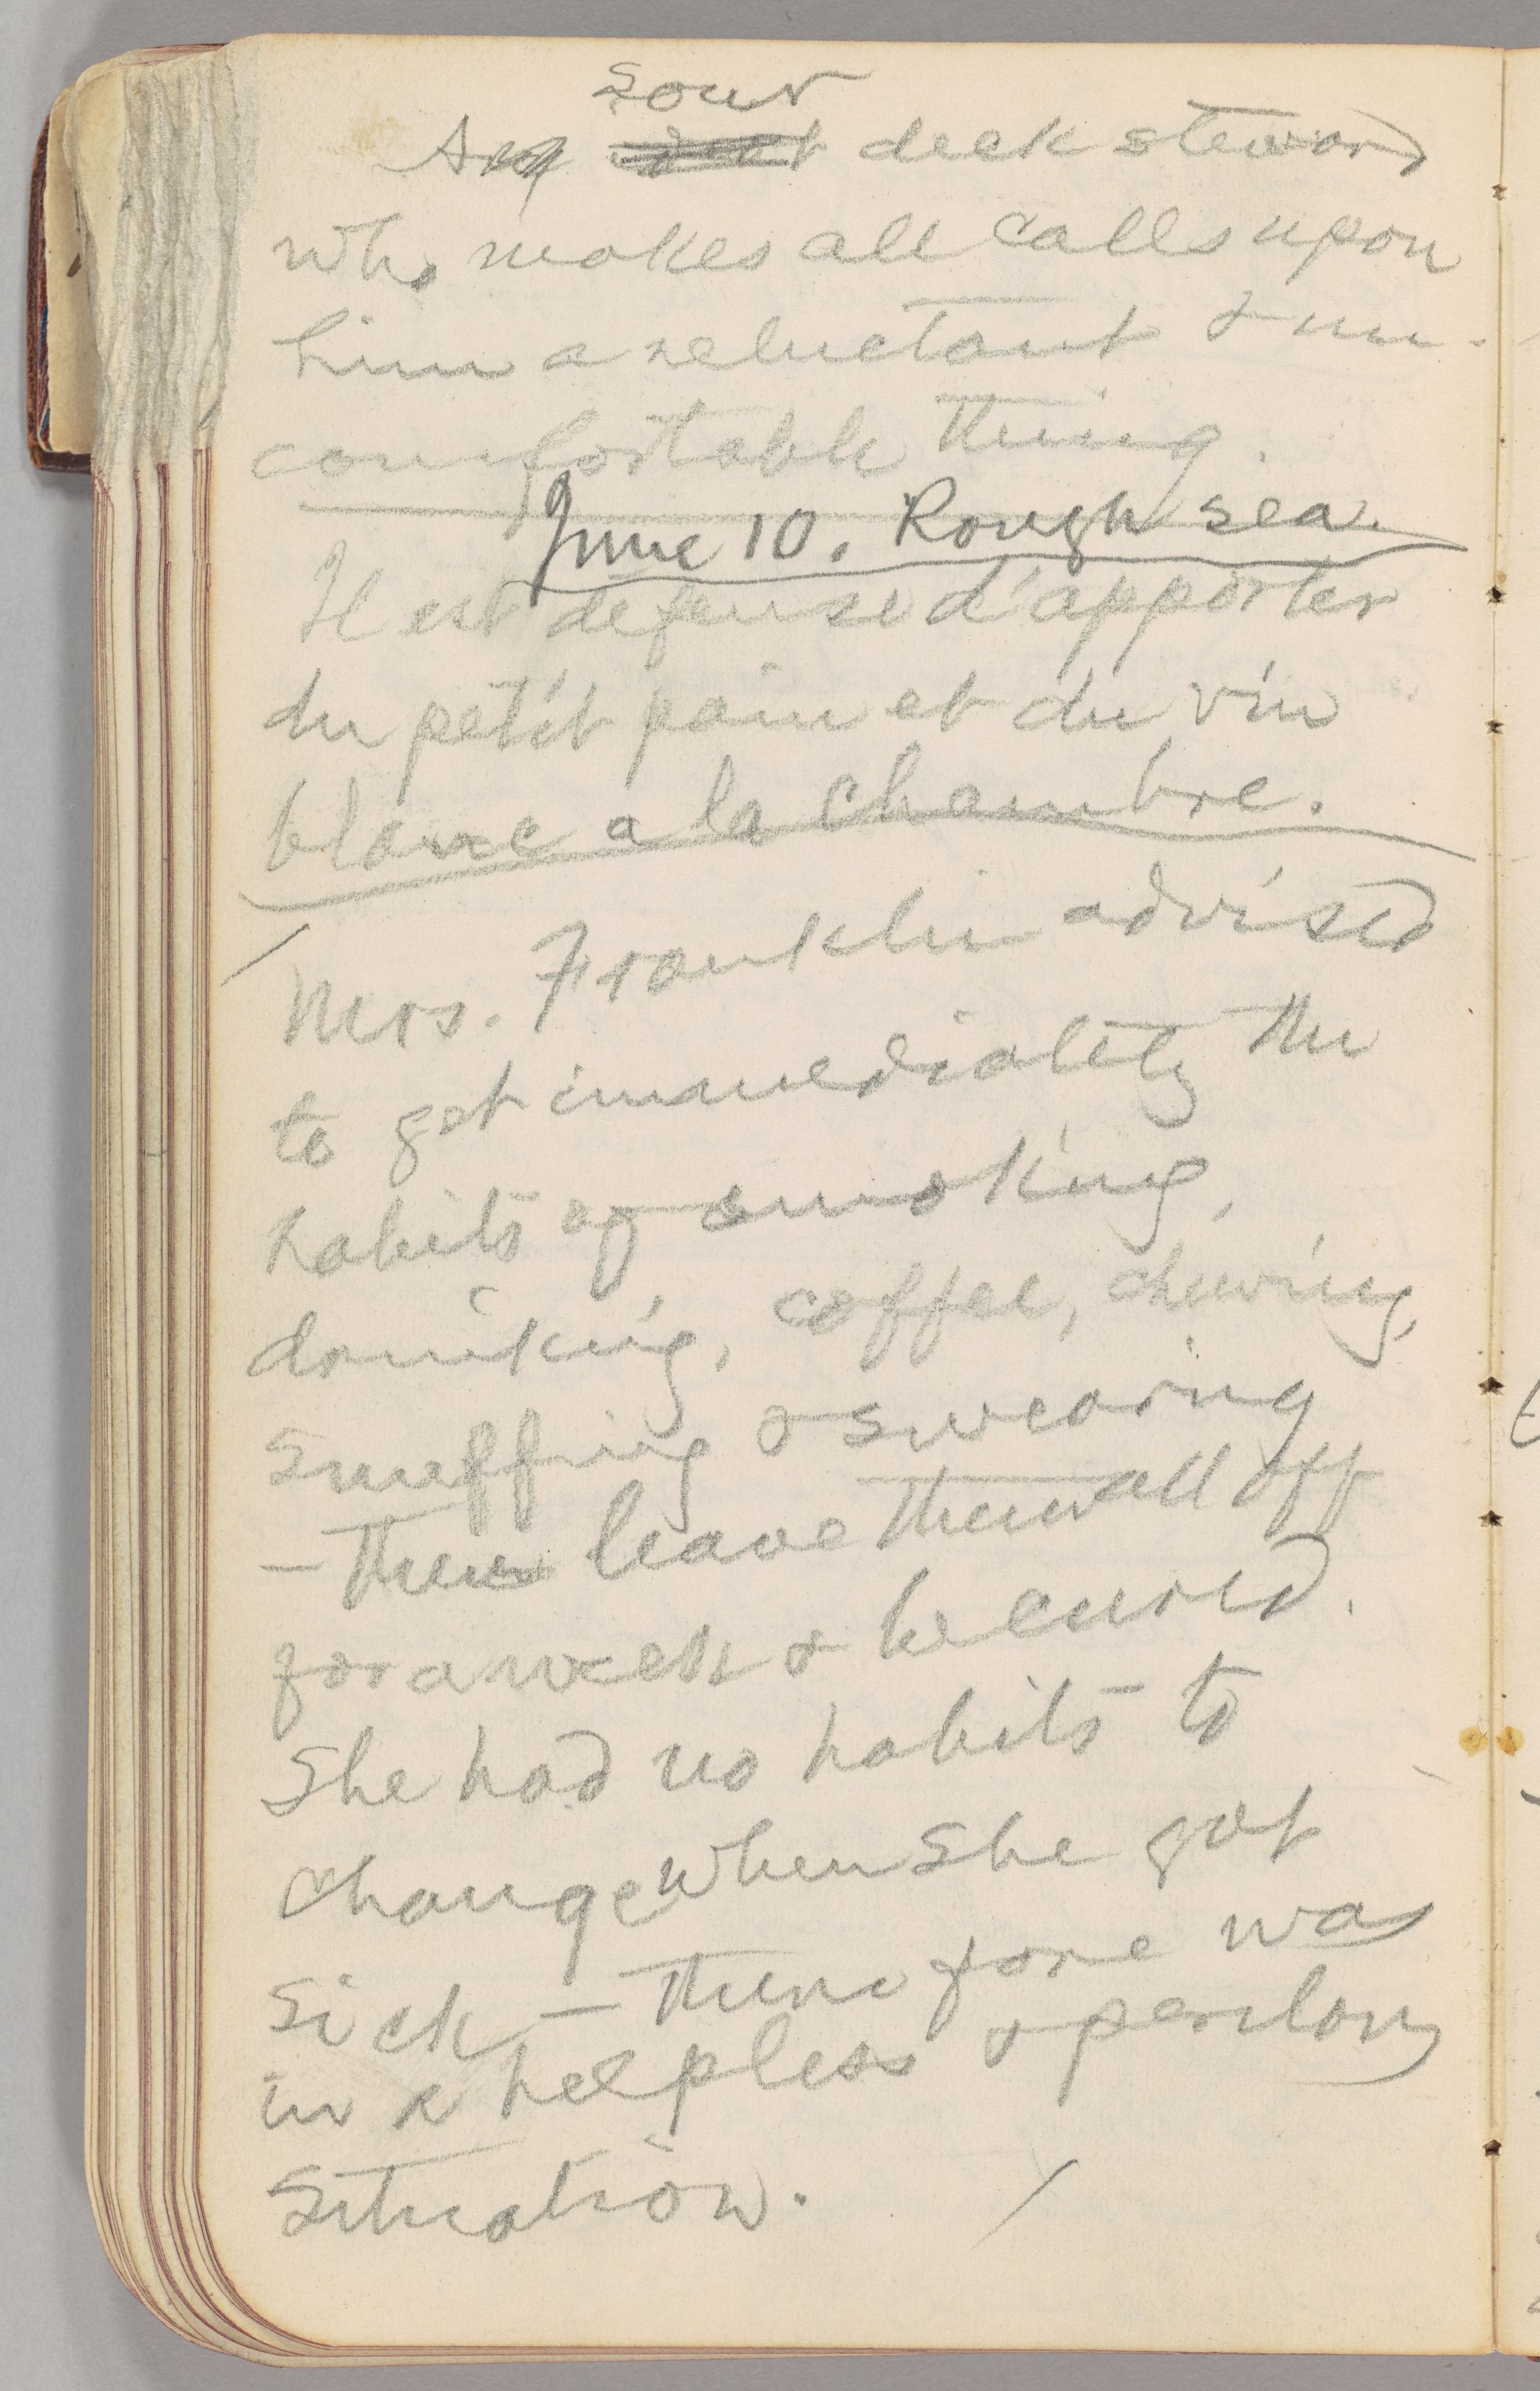 A sour deck steward
who makes all calls upon
him a reluctant & un-
comfortable thing.
June 10. Rough sea.
Il est defense d'apporter
du petit pain et du vin
blanc a la chambre.
Mrs. Franklin advised
to get immediately the
habits of smoking,
drinking, coffee, chewing,
snuffing & swearing
— then leave them all off
for a week & be cured.
She had no habits to
change when she got
sick — therefore was
in a helpless & perilous
situation.